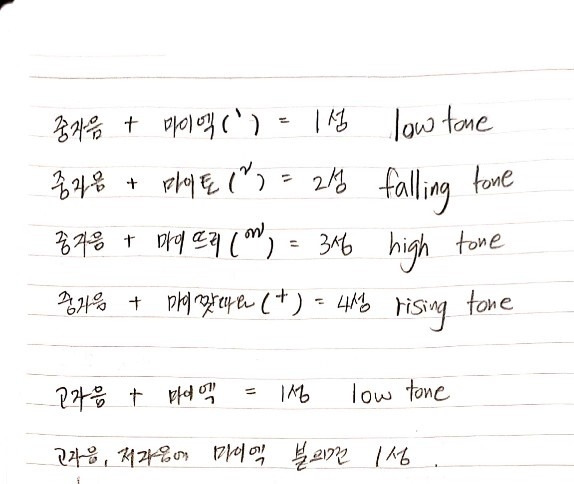 중자음 + 마이엑(่) = 1성 low tone
중자음 + 마이토(้) = 2성 falling tone
중자음 + 마이뜨리(๊) = 3성 high tone
중자음 + 마이짯따와(+) = 4성 rising tone
고자음 + 마이엑 = 1성 low tone
고자음, 저자음에 마이엑 1성.